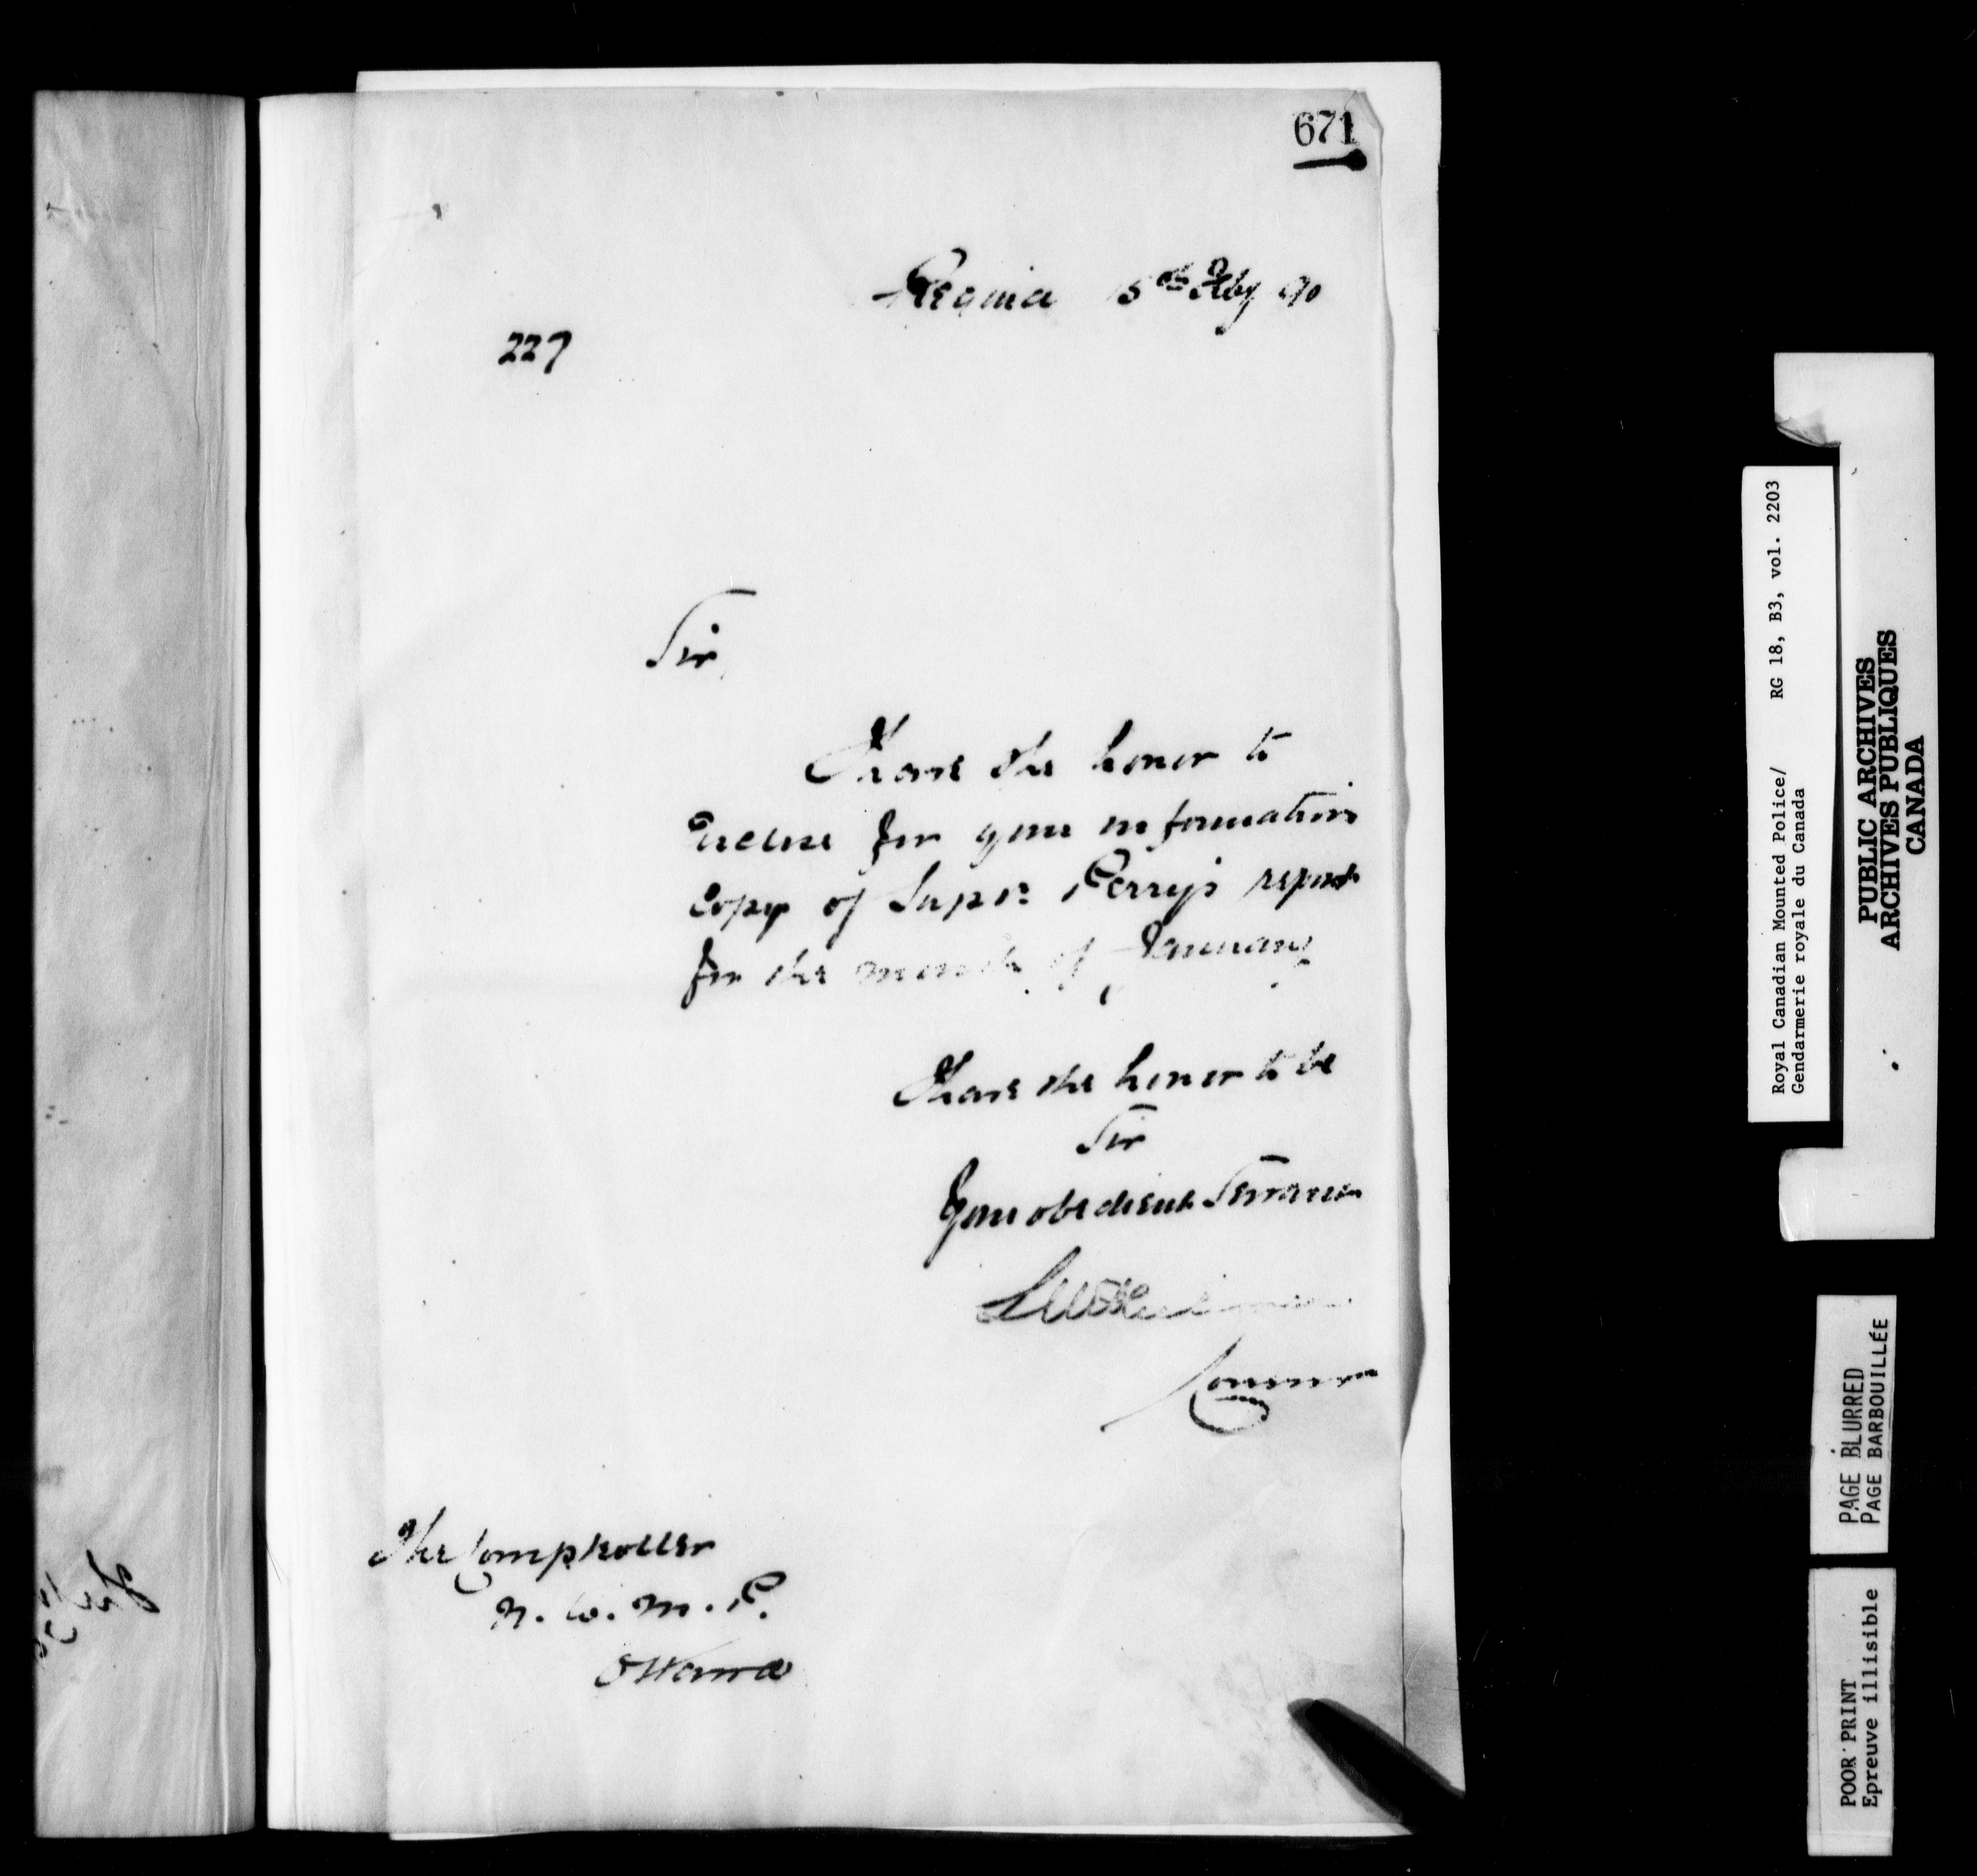 671
Regina 15th Feby 90
227
Sir,
I have the honor to
enclose for your information
copy of Supt. Perry's report
for the month of January
I have the honor to be
Sir
Your obedient Servant
Commr
The Comptroller
N. W. M. P.
Ottawa
Royal Canadian Mounted Police/ RG 18, B3, vol. 2203
Gendarmerie royale du Canada
PUBLIC ARCHIVES
ARCHIVES PUBLIQUES
CANADA
PAGE BLURRED
PAGE BARBOUILLÉE
POOR PRINT
Epreuve illisible